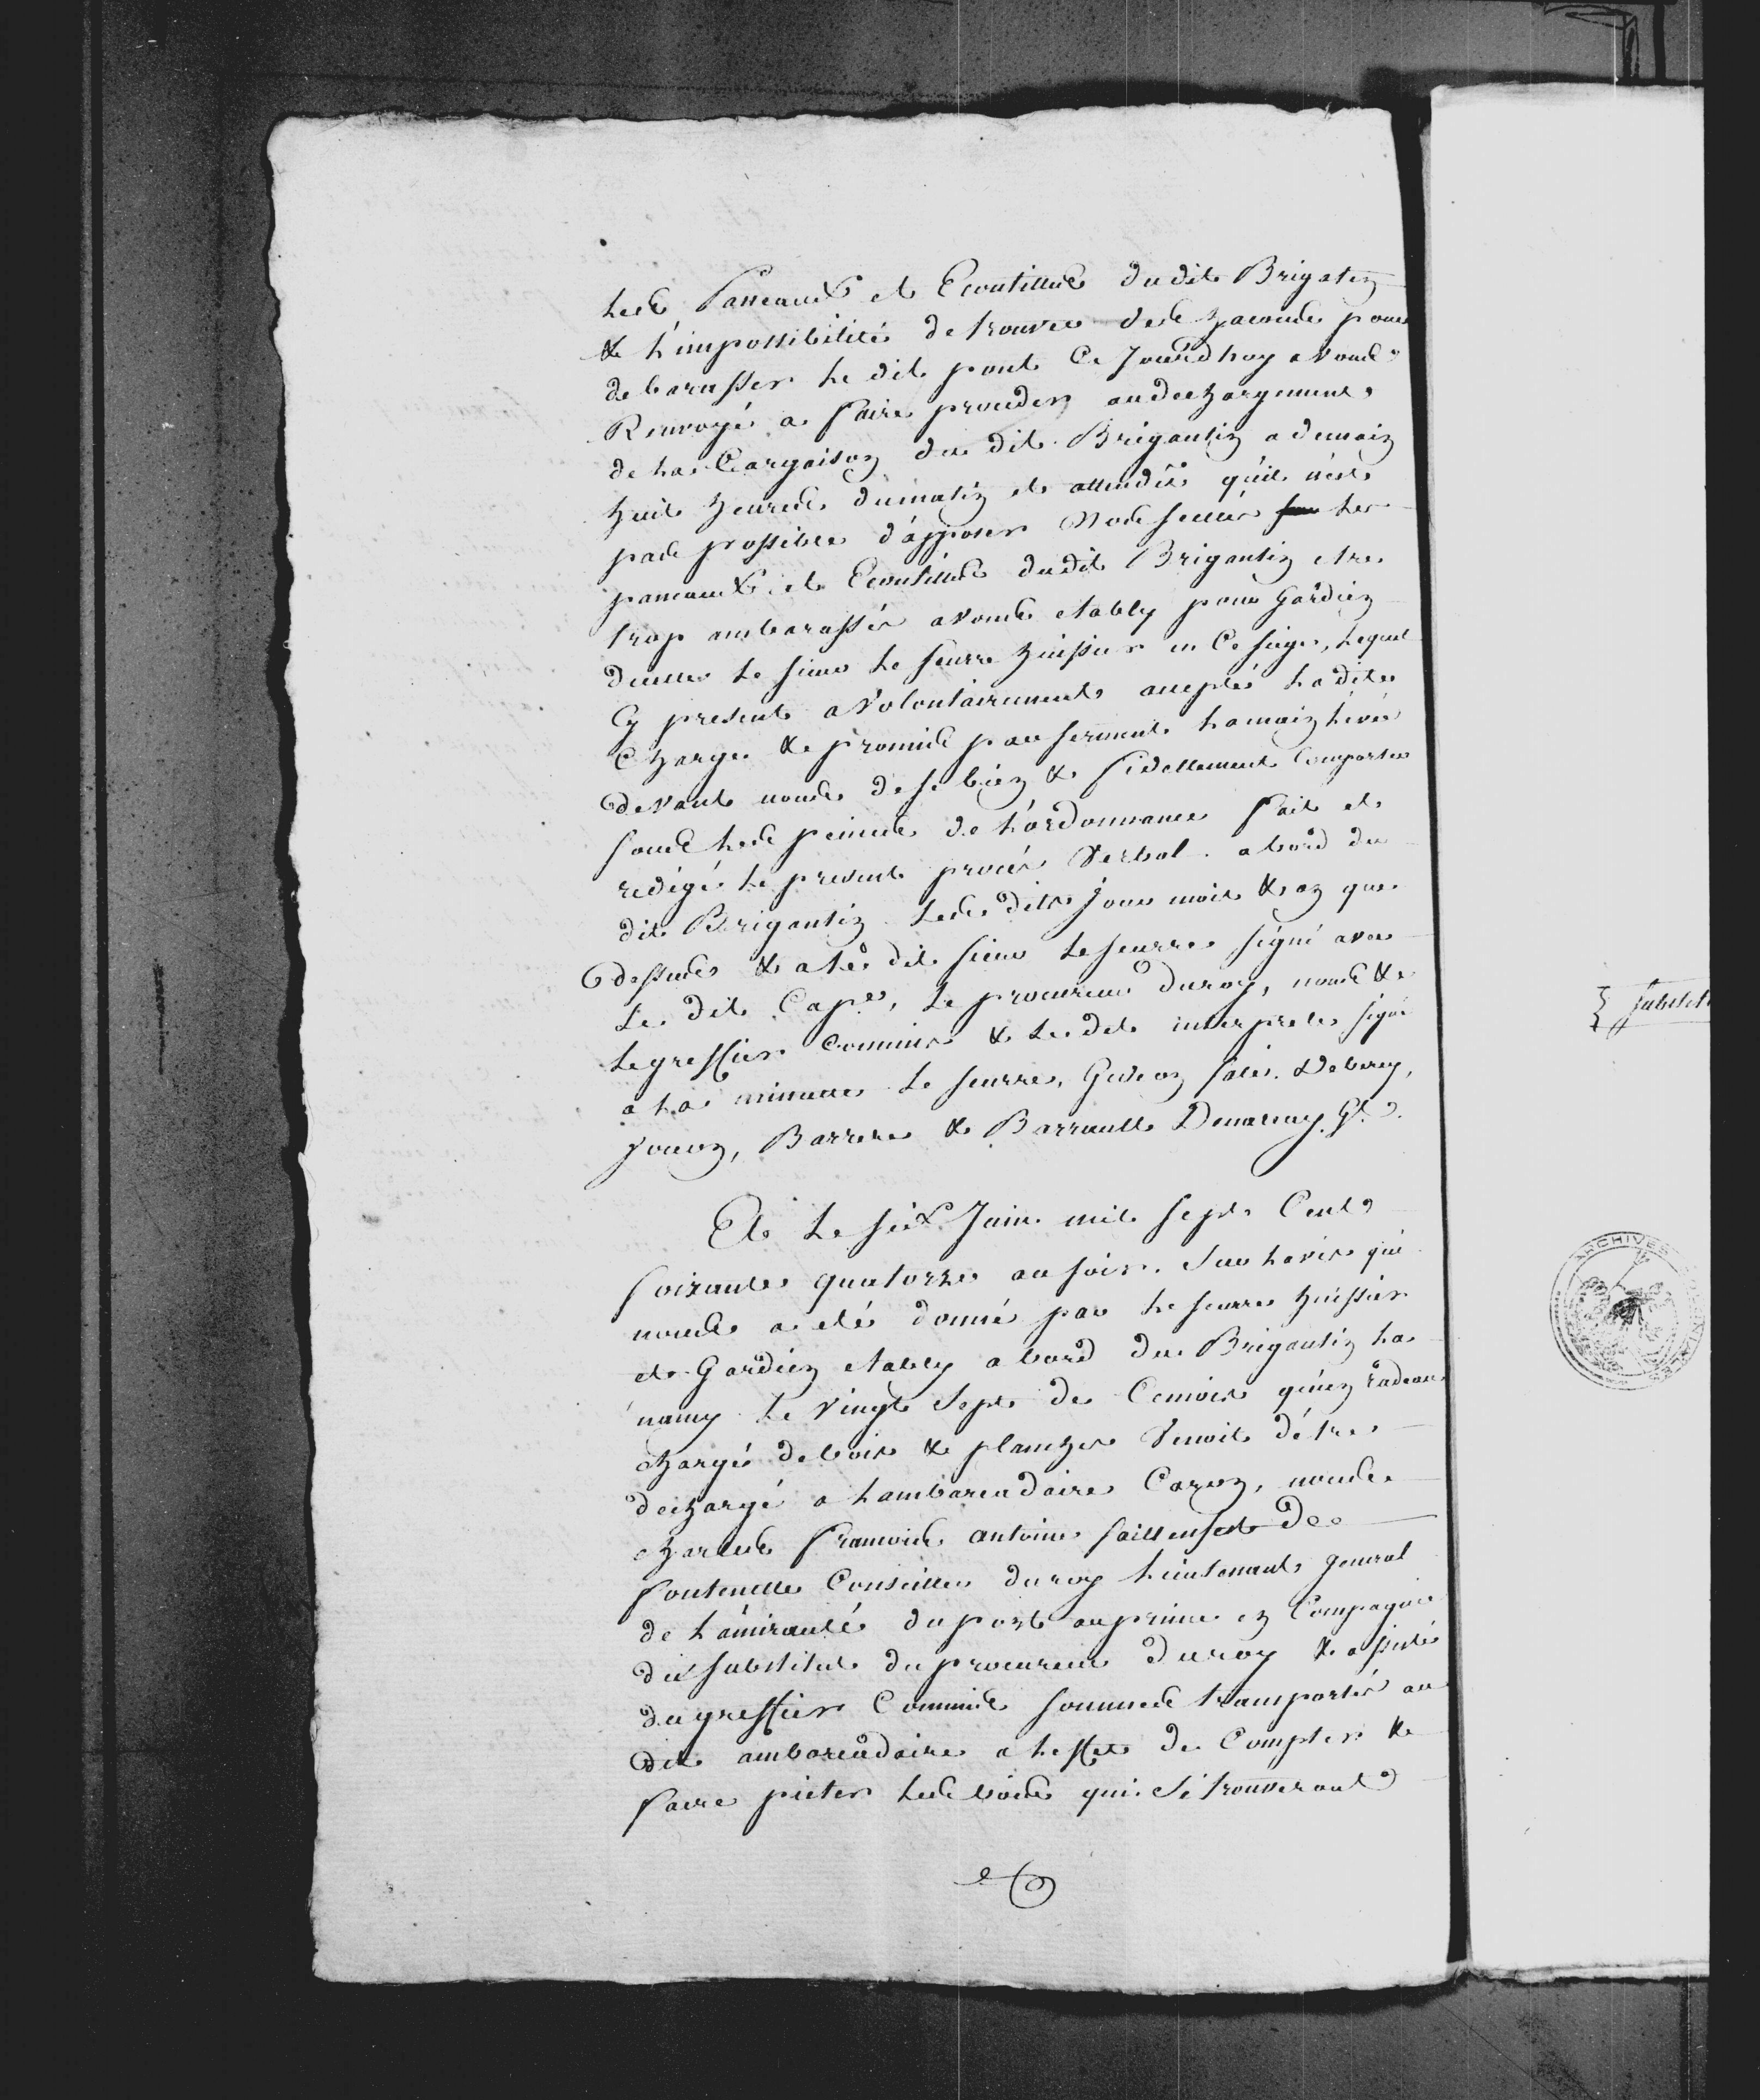 Les Panneaux et Ecoutilles du dit Brigatin
& L'impossibilité de trouver des Zacoude pour
debarasser Le dit pont Ce Jourdhuy avons
Renvoyé a faire proceder au dechargement
de La Cargaison du dit Brigantin a demain
huit heures du matin et attendu qu'il n'est
pas possible d'apposer Nos scellés Les
panneaux et Ecoutilles du dit Brigantin etre
trop embarassés avons etably pour Gardien
diceux le sieur Le seurre huissier en Ce siege, Lequel
Cy present a Volontairement accepté La dite
Charge & promis par serment La main Levée
devant nous de se bien & fidellement Comporter
sous Les peines de L'ordonnance fait et
redigé Le present procés Verbal a bord du
dit Brigantin Les dits jour mois & an que
dessus & a Le dit sieur Le seurre signé avec
Le dit Cap.ne, Le procureur du roy, nous &
Le greffier Commis & Le dit interprete signé
a La minutte Le seurre, Gideon
Jouon, Barrere & Barrault Denarcay Gr.

Et Le six Juin mil sept Cent
soixante quatorze au soir. Sur Lavis qui
nous a été donné par Le seurre huissier
et Gardien etably a bord du Brigantin La
nancy Le vingt sept de Cemois qu'un radeau
chargé de bois & planches Venoit d'étre
dechargé a Lambarcadaire Caron, nous
Charles francois antoine saillenfest de
fontenelle Conseiller du roy Lieutenant general
de L'amirauté du port au prince en Compagnie
du substitut du procureur du roy & assisté
du greffier Commis sommes transportés au
dit ambarcadaire a Leffet de Compter &
faire pieter Les bois qui si trouveront

substitut
ARCHIVES COLONIALES